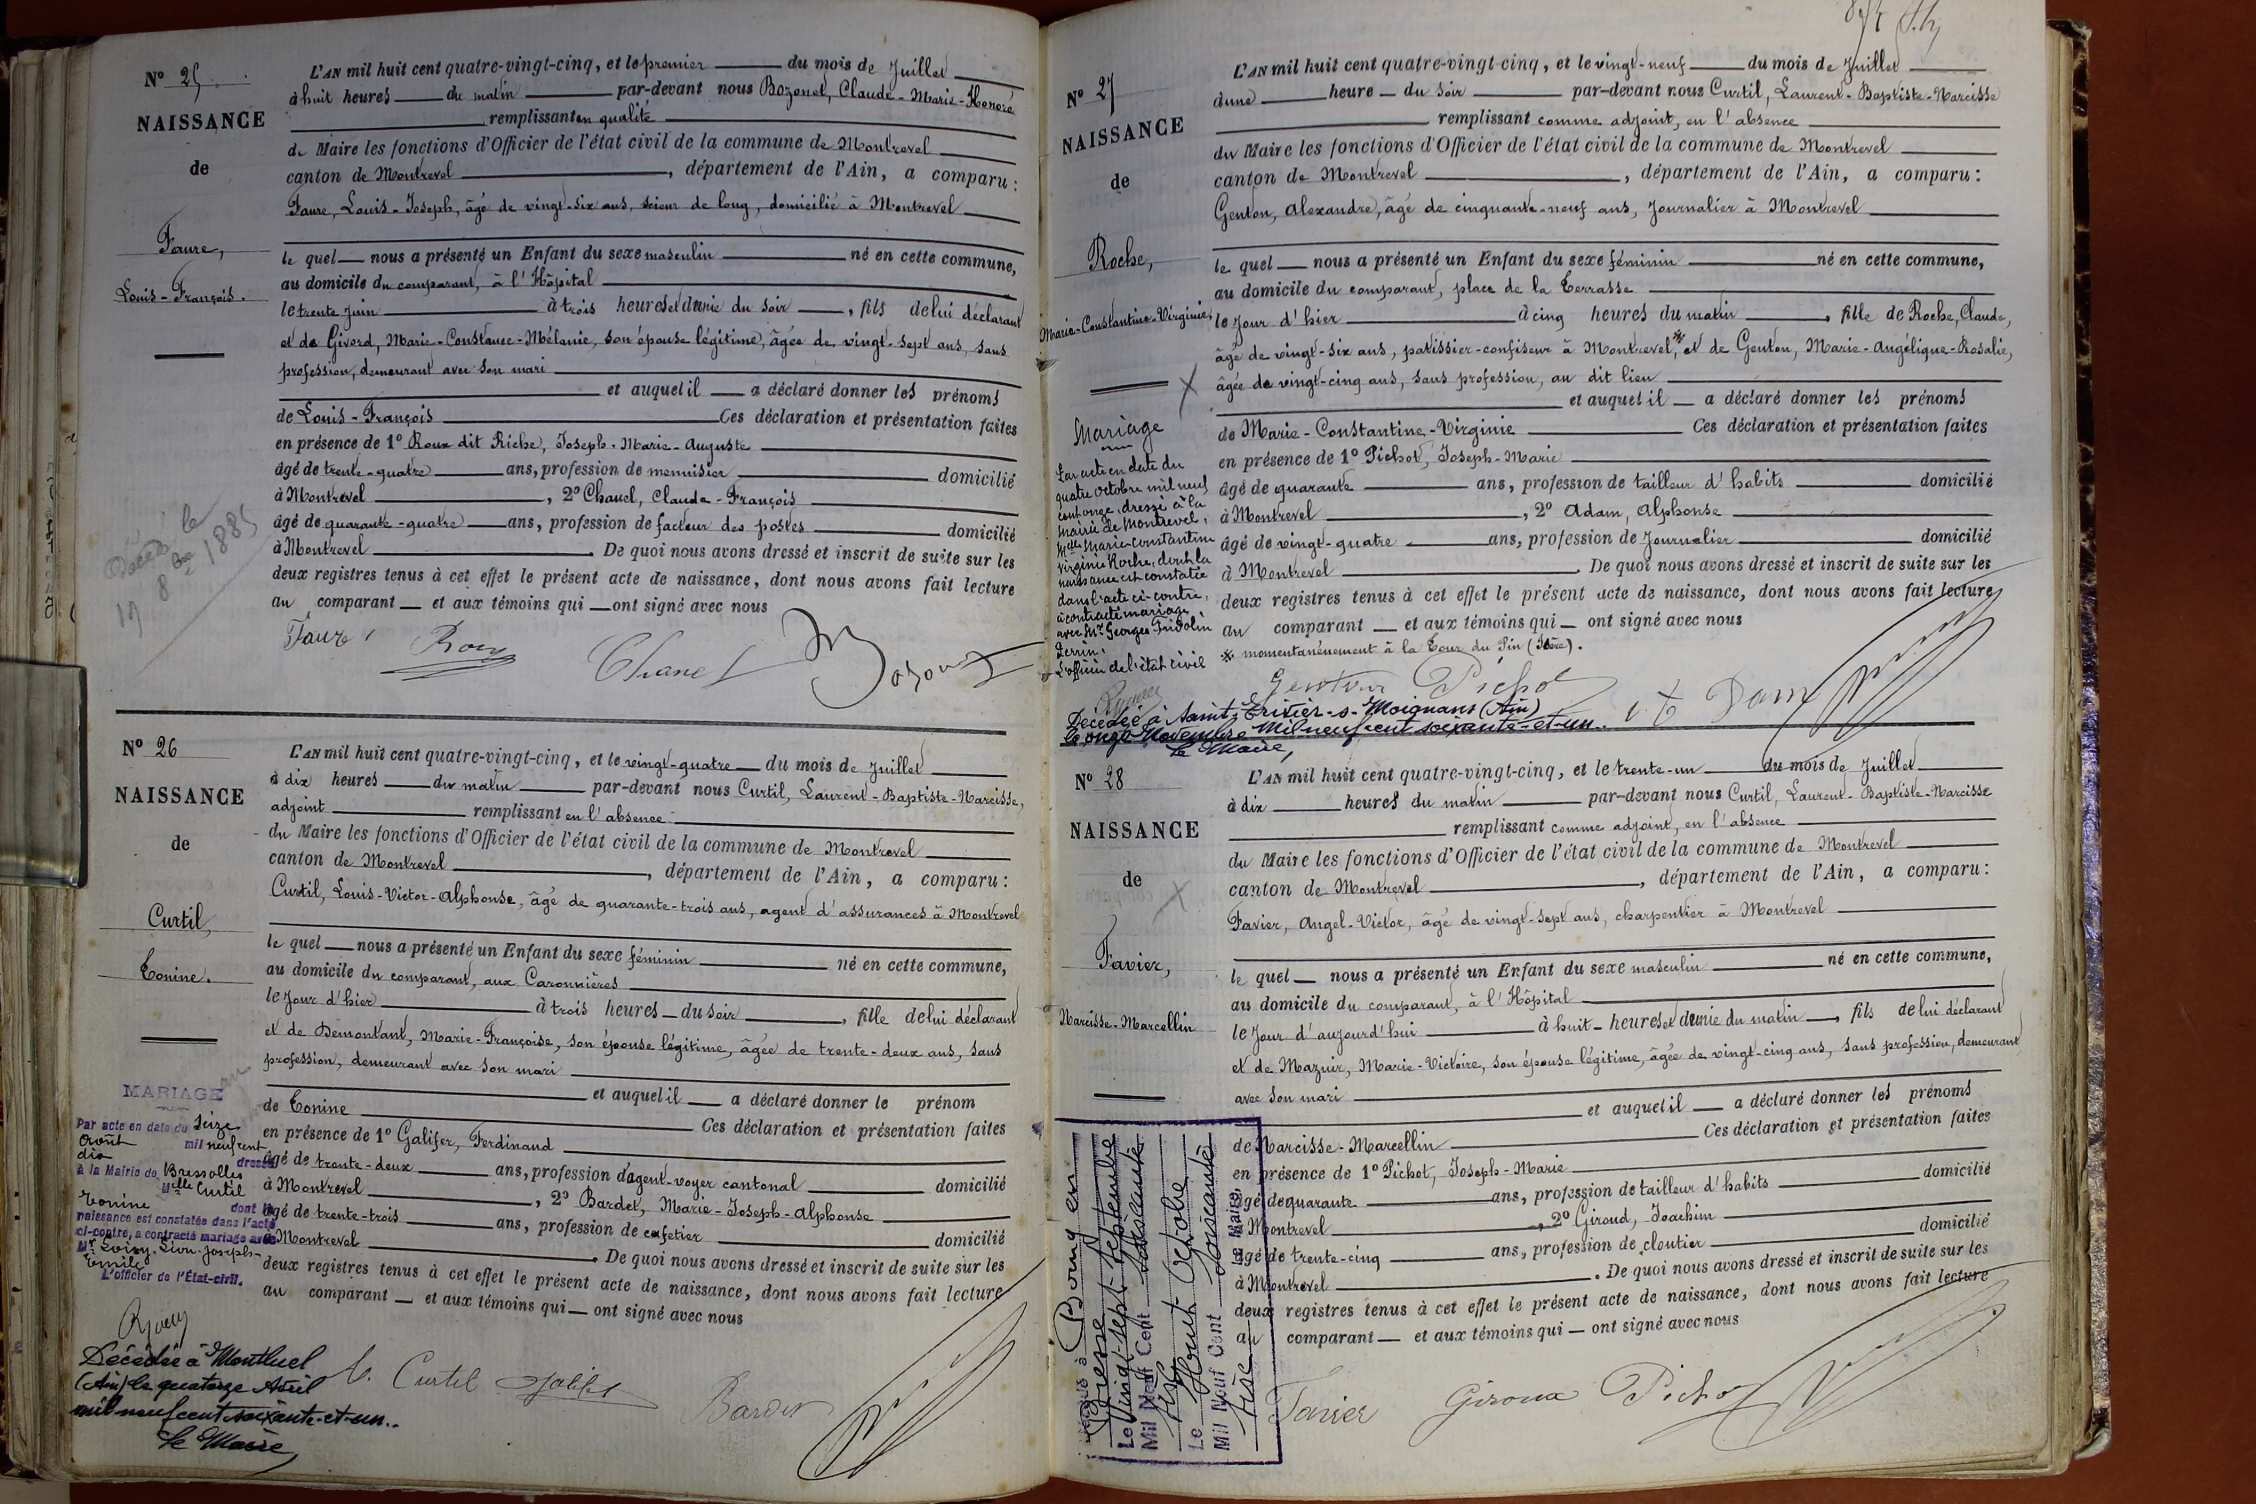 N° 25.
NAISSANCE
de
Faure,
Louis-François.
Décédé le
19 8bre 1885
L'AN mil huit cent quatre-vingt-cinq, et le premier du mois de Juillet
à huit heures du matin par-devant nous Bozonet, Claude-Marie-Honoré
remplissant en qualité
de Maire les fonctions d'Officier de l'état civil de la commune de Montrevel
canton de Montrevel, département de l'Ain, a comparu :
Faure, Louis-Joseph, âgé de vingt-six ans, scieur de long, domicilié à Montrevel
lequel nous a présenté un Enfant du sexe masculin né en cette commune,
au domicile du comparant, à l'Hôpital
le trente juin à trois heures et demie du soir, fils de lui déclarant
et de Givord, Marie-Constance-Mélanie, son épouse légitime, âgée de vingt-sept ans, sans
profession, demeurant avec son mari
et auquel il a déclaré donner les prénoms
de Louis-François Ces déclaration et présentation faites
en présence de 1° Roux dit Riche, Joseph-Marie-Auguste
âgé de trente-quatre ans, profession de menuisier domicilié
à Montrevel, 2° Chanel, Claude-François
âgé de quarante-quatre ans, profession de facteur des postes domicilié
à Montrevel. De quoi nous avons dressé et inscrit de suite sur les
deux registres tenus à cet effet le présent acte de naissance, dont nous avons fait lecture
au comparant et aux témoins qui ont signé avec nous
Faure Roux Chanel Bozonet
N° 26
NAISSANCE
de
Curtil,
Tonine.
MARIAGE
Par acte en date du seize
Août mil neuf cent
dix dressé
à la Mairie de Bressolles
Melle Curtil
Tonine dont la
naissance est constatée dans l'acte
ci-contre, a contracté mariage avec
Mr Loisy, Léon-Joseph-
Emile
L'officier de l'État-civil.
Décédée à Montluel
(Ain) le quatorze Avril
mil neuf cent soixante-et-un.
Le Maire,
L'AN mil huit cent quatre-vingt-cinq, et le vingt-quatre du mois de Juillet
à dix heures du matin par-devant nous Curtil, Laurent-Baptiste-Narcisse,
adjoint remplissant en l'absence
du Maire les fonctions d'Officier de l'état civil de la commune de Montrevel
canton de Montrevel, département de l'Ain, a comparu :
Curtil, Louis-Victor-Alphonse, âgé de quarante-trois ans, agent d'assurances à Montrevel
lequel nous a présenté un Enfant du sexe féminin né en cette commune,
au domicile du comparant, aux Caronnières
le jour d'hier à trois heures du soir, fille de lui déclarant
et de Démontant, Marie-Françoise, son épouse légitime, âgée de trente-deux ans, sans
profession, demeurant avec son mari
et auquel il a déclaré donner le prénom
de Tonine Ces déclaration et présentation faites
en présence de 1° Galifer, Ferdinand
âgé de trente-deux ans, profession d'agent-voyer cantonal domicilié
à Montrevel, 2° Bardet, Marie-Joseph-Alphonse
âgé de trente-trois ans, profession de cafetier domicilié
à Montrevel. De quoi nous avons dressé et inscrit de suite sur les
deux registres tenus à cet effet le présent acte de naissance, dont nous avons fait lecture
au comparant et aux témoins qui ont signé avec nous
Curtil Galifer Bardet
N° 27
NAISSANCE
de
Roche,
Marie-Constantine-Virginie,
Mariage
Par acte en date du
quatre octobre mil neuf
cent onze, dressé à la
mairie de Montrevel,
Melle Marie-Constantine
Virginie Roche, dont la
naissance est constatée
dans l'acte ci-contre,
a contracté mariage
avec Mr Georges Fridolin
Perrin.
L'officier de l'état civil
Décédée à Saint-Trivier-s-Moignans (Ain)
le onze Novembre mil neuf cent soixante-et-un.
Le Maire,
L'AN mil huit cent quatre-vingt-cinq, et le vingt-neuf du mois de Juillet
à une heure du soir par-devant nous Curtil, Laurent-Baptiste-Narcisse
remplissant comme adjoint, en l'absence
du Maire les fonctions d'Officier de l'état civil de la commune de Montrevel
canton de Montrevel, département de l'Ain, a comparu :
Genton, Alexandre, âgé de cinquante-neuf ans, journalier à Montrevel
lequel nous a présenté un Enfant du sexe féminin né en cette commune,
au domicile du comparant, place de la Terrasse
le jour d'hier à cinq heures du matin, fille de Roche, Claude,
âgé de vingt-six ans, patissier-confiseur à Montrevel,※ et de Genton, Marie-Angélique-Rosalie,
âgée de vingt-cinq ans, sans profession, au dit lieu
et auquel il a déclaré donner les prénoms
de Marie-Constantine-Virginie Ces déclaration et présentation faites
en présence de 1° Pichot, Joseph-Marie
âgé de quarante ans, profession de tailleur d'habits domicilié
à Montrevel, 2° Adam, Alphonse
âgé de vingt-quatre ans, profession de Journalier domicilié
à Montrevel. De quoi nous avons dressé et inscrit de suite sur les
deux registres tenus à cet effet le présent acte de naissance, dont nous avons fait lecture
au comparant et aux témoins qui ont signé avec nous
※ momentanément à la Tour du Pin (Isère).
Genton Pichot
N° 28
NAISSANCE
de
Favier,
Narcisse-Marcellin
Décédé à Bourg en
Bresse
Le Vingt-sept Septembre
Mil Neuf Cent Soixante
six
Le Huit Octobre
Mil Neuf Cent Soixante
six Le Maire,
L'AN mil huit cent quatre-vingt-cinq, et le trente-un du mois de Juillet
à dix heures du matin par-devant nous Curtil, Laurent-Baptiste-Narcisse
remplissant comme adjoint, en l'absence
du Maire les fonctions d'Officier de l'état civil de la commune de Montrevel
canton de Montrevel, département de l'Ain, a comparu :
Favier, Angel-Victor, âgé de vingt-sept ans, charpentier à Montrevel
lequel nous a présenté un Enfant du sexe masculin né en cette commune,
au domicile du comparant, à l'Hôpital
le jour d'aujourd'hui à huit heures et demie du matin, fils de lui déclarant
et de Mazuir, Marie-Victoire, son épouse légitime, âgée de vingt-cinq ans, sans profession, demeurant
avec son mari
et auquel il a déclaré donner les prénoms
de Narcisse-Marcellin Ces déclaration et présentation faites
en présence de 1° Pichot, Joseph-Marie
âgé de quarante ans, profession de tailleur d'habits domicilié
à Montrevel, 2° Giroud, Joachim
âgé de trente-cinq ans, profession de cloutier domicilié
à Montrevel. De quoi nous avons dressé et inscrit de suite sur les
deux registres tenus à cet effet le présent acte de naissance, dont nous avons fait lecture
au comparant et aux témoins qui ont signé avec nous
Favier Giroux Pichot